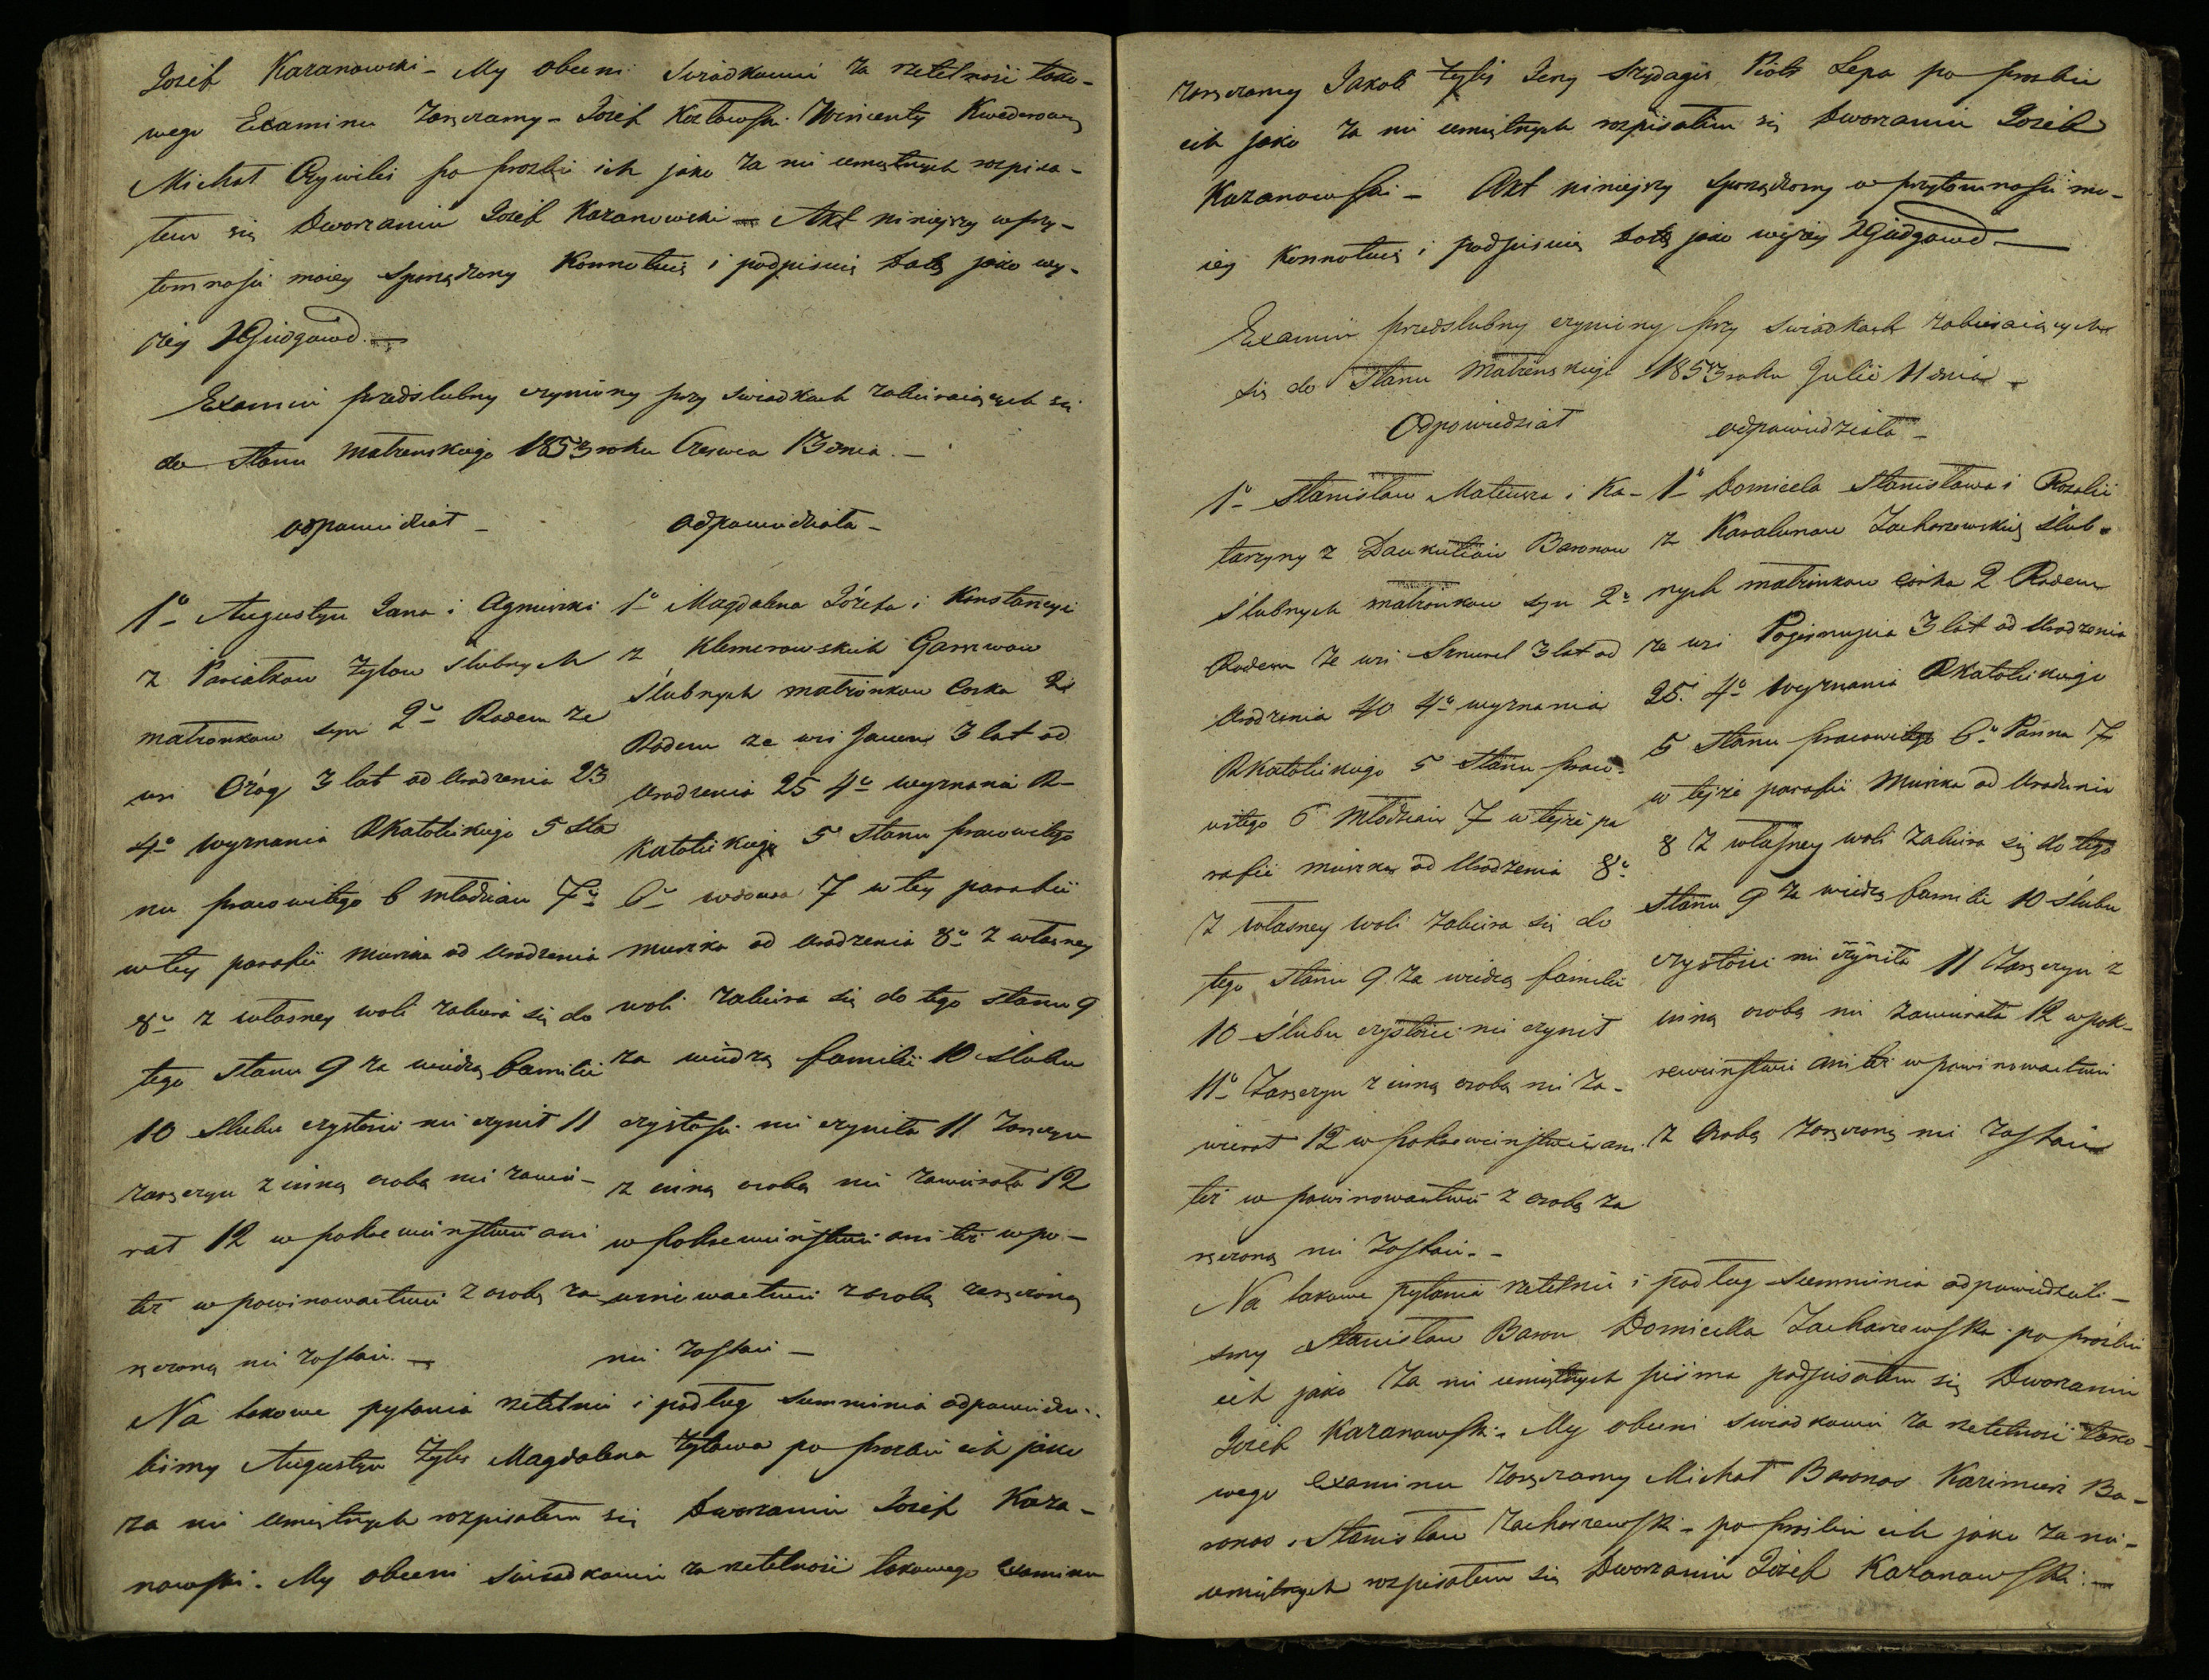 Jozef Kazanowski – My obecni Swiadkowie za rzetelność tako-
wego Examinu zaręczamy – Jozef Kozłowski Wincenty
Michał po prozbie ich jako za nie umiętnych rozpisa-
łem się Dworzanin Jozef Kazanowski – Akt niniejszy w przy-
tomności moiey Sporządzony Konnotuię i podpisuię Datą jako wy-
żey
Examin przedslubny czyniony przy swiadkach zabieraiących się
do Stanu małżenskiego 1853 roku Czerwca 13 dnia. –
odpowiedział –
odpowiedziała –
1o Augustyn Jana i Agnieszki
z Żylow slubnych
małżonkow syn 2o Rodem ze
wsi Ożog 3 lat od Urodzenia 23
4o wyznania RKatolickiego 5 sta
nu pracowitego 6 młodzian 7o
w tey parafii mieszka od Urodzenia
8o z własney woli zabiera się do
tego stanu 9 za wiedzą familii
10 slubu czystości nie czynił 11
zaręczyn z inną osobą nie zawie-
rał 12 w pokrewienstwie ani
też w powinowactwie z osobą za
ręczoną nie zostaie. –
1o Magdalena Józefa i Konstancyi
z Klemerowskich
Ślubnych małżonkow Corka 2o
Rodem ze wsi 3 lat od
Urodzenia 25 4o wyznania R–
Katolickiego 5o stanu pracowitego
6o wdowa 7 w tey parafii
mieszka od Urodzenia 8o z własney
woli zabiera się do tego stanu 9
za wiedzą familii 10 slubu
czystości nie czyniła 11 zaręczyn
z inną osobą nie zawierała 12
w pokrewieństwie ani też w po-
winowactwie z osobą zaręczoną
nie zostaie –
Na takowe pytania rzetelnie i podług sumnienia odpowiedzie-
lismy Augustyn Żylis Magdalena Żylowa po prozbie ich jako
za nie umiętnych rozpisałem się Dworzanin Jozef Kaza-
nowski. My obecni swiadkowie za rzetelność takowego Examinu
zaręczamy Jakob Żylis Jerzy Piotr Lepa po prozbie
ich jako za nie umiętnych rozpisałem się Dworzanin Jozef
Kazanowski – Akt niniejszy sporządzony w przytomności mo-
iey Konnotuię i podpisuię Datą jako wyżey
Examin przedslubny czyniony przy swiadkach zabieraiących
się do Stanu Małżenskiego 1853 roku Julii 11 dnia
Odpowiedział
odpowiedziała –
1o Stanisław Mateusza i Ka-
tarzyny z Baronow
slubnych małżonkow syn 2o
Rodem ze wsi 3 lat od
Urodzenia 40 4o wyznania
RKatolickiego 5 Stanu praco-
witego 6 Młodzian 7 w teyże pa
rafii mieszka od Urodzenia 8o
z własney woli zabiera się do
tego stanu 9 za wiedzą familii
10 Ślubu czystości nie czynił
11o Zaręczyn z inną osobą nie za-
wierał 12 w pokrewieństwie ani
też w powinowactwie z osobą za
ręczoną nie zostaie. –
1o Domicela Stanisława i Rozalii
z Zacharzewskich slub-
nych małżonkow corka 2 Rodem
ze wsi 3 lat od Urodzenia
25. 4o wyznania RKatolickiego
5 Stanu pracowitego 6o Panna 7
w teyże parafii Mieszka od Urodzenia
8 z własney woli zabiera się do tego
stanu 9 za wiedzą familii 10 ślubu
czystości nie czyniła 11 Zaręczyn z
inną osobą nie zawierała 12 w pok-
rewienstwie ani też w powinowactwie
z Osobą zaręczoną nie zostaie
Na takowe pytania rzetelnie i podług sumnienia odpowiedzieli-
smy Stanisław Baron Domicella Zacharzewska po prozbie
ich jako za nie umiętnych pisma podpisałem się Dworzanin
Jozef Kazanowski. My obecni swiadkowie za rzetelność tako-
wego Examinu zaręczamy Michał Baronas Kazimierz Ba-
ronas. Stanisław Zacharzewski – po prozbie ich jako za nie-
umiętnych rozpisałem się Dworzanin Jozef Kazanowski. –